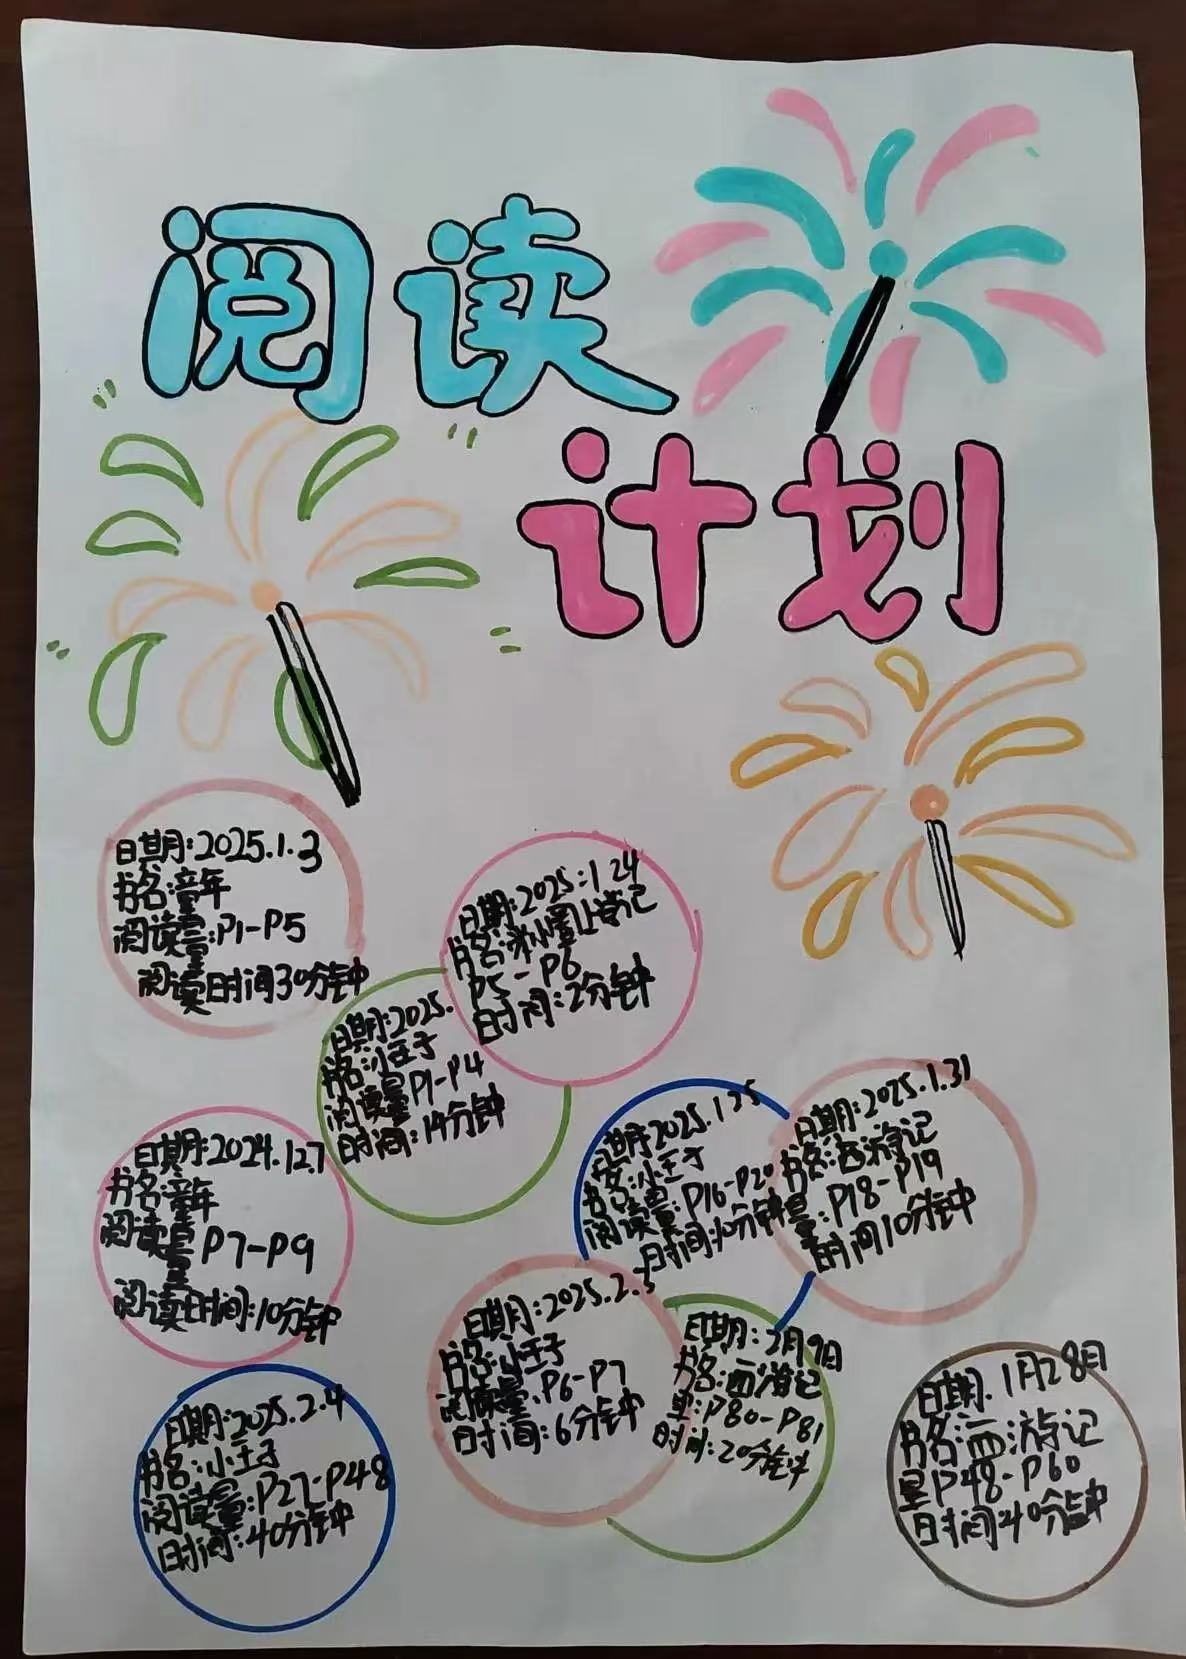 阅读
计划
日期:2025.1.3
书名:童年
阅读量:P1-P5
阅读时间30分钟
日期:2025:1 24
书名:米小圈上学记
P5-P6
时间:2分钟
日期:2025.
书名:小王子
阅读量P1-P4
时间:14分钟
日期:2024.127
书名:童年
阅读量
P7-P9
阅读时间:10分钟
期2025.1
小王子
阅读量:P16-P20
时间:10分钟
日期:2025.1.31
书名:西游记
量:P18-P19
时间10分钟
日期:2025.2.3
书名:小王子
阅读量:P6-P7
时间:6分钟
日期:2月9日
书名:西游记
量:P80-P81
时间:20分钟
日期:2025.2.4
书名:小王子
阅读量:P27-P48
时间:40分钟
日期.1月28日
书名:西游记
量P48-P60
时间40分钟